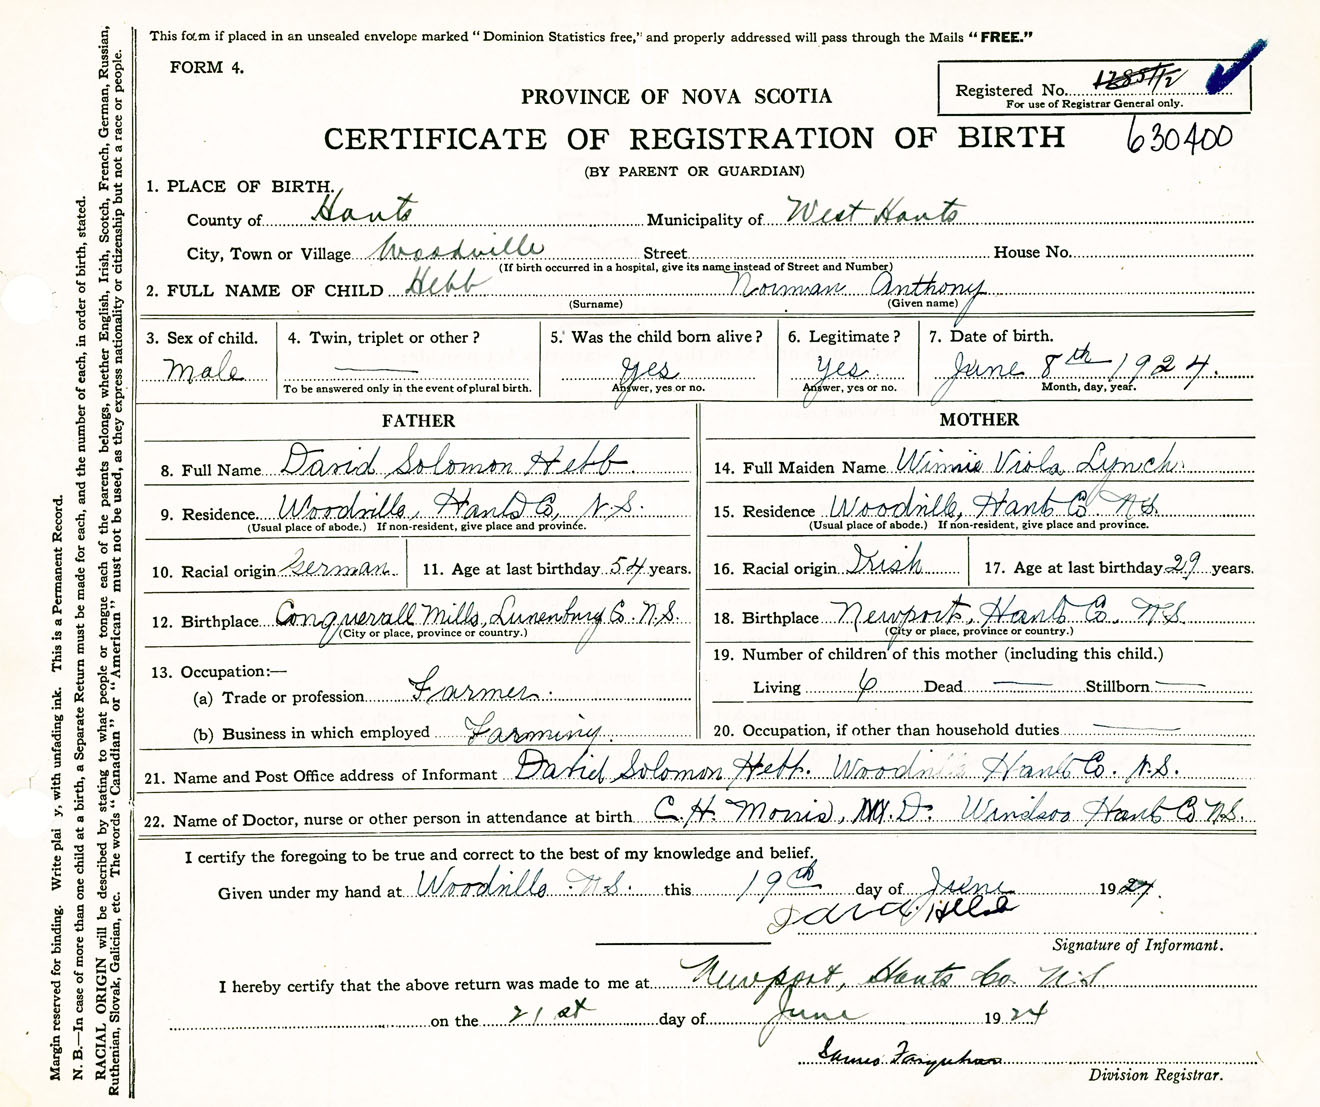 This form if placed in an unsealed envelope marked “Dominion Statistics free,” and properly addressed will pass through the Mails “FREE.”
FORM 4.
Registered No.
For use of Registrar General only.
630400
PROVINCE OF NOVA SCOTIA
CERTIFICATE OF REGISTRATION OF BIRTH
(BY PARENT OR GUARDIAN)
1. PLACE OF BIRTH.
County of Hants Municipality of West Hants
City, Town or Village Woodville Street House No.
(If birth occurred in a hospital, give its name instead of Street and Number)
2. FULL NAME OF CHILD Hebb Norman Anthony
(Surname) (Given name)
3. Sex of child. Male
4. Twin, triplet or other? —
To be answered only in the event of plural birth.
5. Was the child born alive? Yes
Answer, yes or no.
6. Legitimate? Yes
Answer, yes or no.
7. Date of birth. June 8th 1924.
Month, day, year.
FATHER
8. Full Name David Solomon Hebb.
9. Residence Woodville, Hants Co, N.S.
(Usual place of abode.) If non-resident, give place and province.
10. Racial origin German 11. Age at last birthday 54 years.
12. Birthplace Conquerall Mills, Lunenburg Co. N.S.
(City or place, province or country.)
13. Occupation:—
(a) Trade or profession Farmer.
(b) Business in which employed Farming.
MOTHER
14. Full Maiden Name Winnie Viola Lynch.
15. Residence Woodville, Hants Co. N.S.
(Usual place of abode.) If non-resident, give place and province.
16. Racial origin Irish 17. Age at last birthday 29 years.
18. Birthplace Newport, Hants Co, N.S.
(City or place, province or country.)
19. Number of children of this mother (including this child.)
Living 6 Dead — Stillborn —
20. Occupation, if other than household duties —
21. Name and Post Office address of Informant David Solomon Hebb. Woodville Hants Co. N.S.
22. Name of Doctor, nurse or other person in attendance at birth C. H. Morris, M.D. Windsor Hants Co N.S.
I certify the foregoing to be true and correct to the best of my knowledge and belief.
Given under my hand at Woodville N.S. this 19th day of June 1924.
David Hebb
Signature of Informant.
I hereby certify that the above return was made to me at Newport, Hants Co. N.S
on the 21st day of June 1924
James Farquhar
Division Registrar.
Margin reserved for binding. Write plai y, with unfading ink. This is a Permanent Record.
N. B.—In case of more than one child at a birth, a Separate Return must be made for each, and the number of each, in order of birth, stated.
RACIAL ORIGIN will be described by stating to what people or tongue each of the parents belongs, whether English, Irish, Scotch, French, German, Russian,
Ruthenian, Slovak, Galician, etc. The words “Canadian” or “American” must not be used, as they express nationality or citizenship but not a race or people.